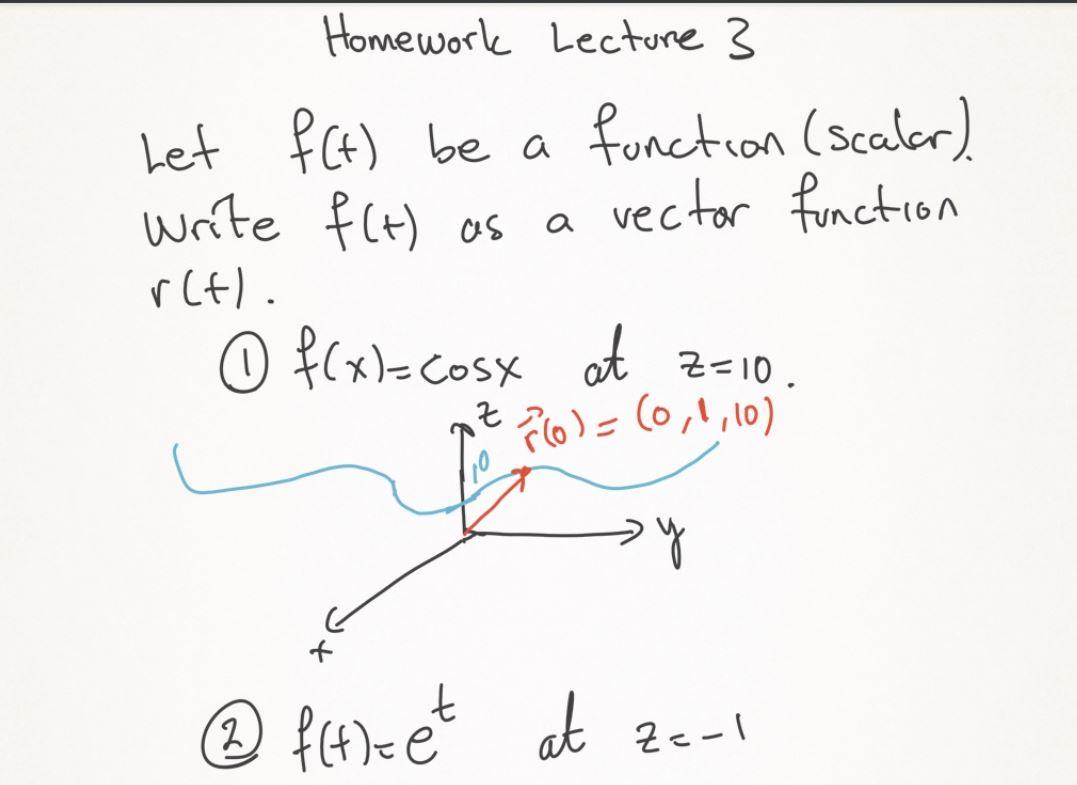 Homework Lecture 3
Let f(t) be a function (scalar).
Write f(t) as a vector function
r(t).
① f(x)=cosx at z=10.
z r⃗(0) = (0,1,10)
10
y
x
② f(t)=e^t at z=-1